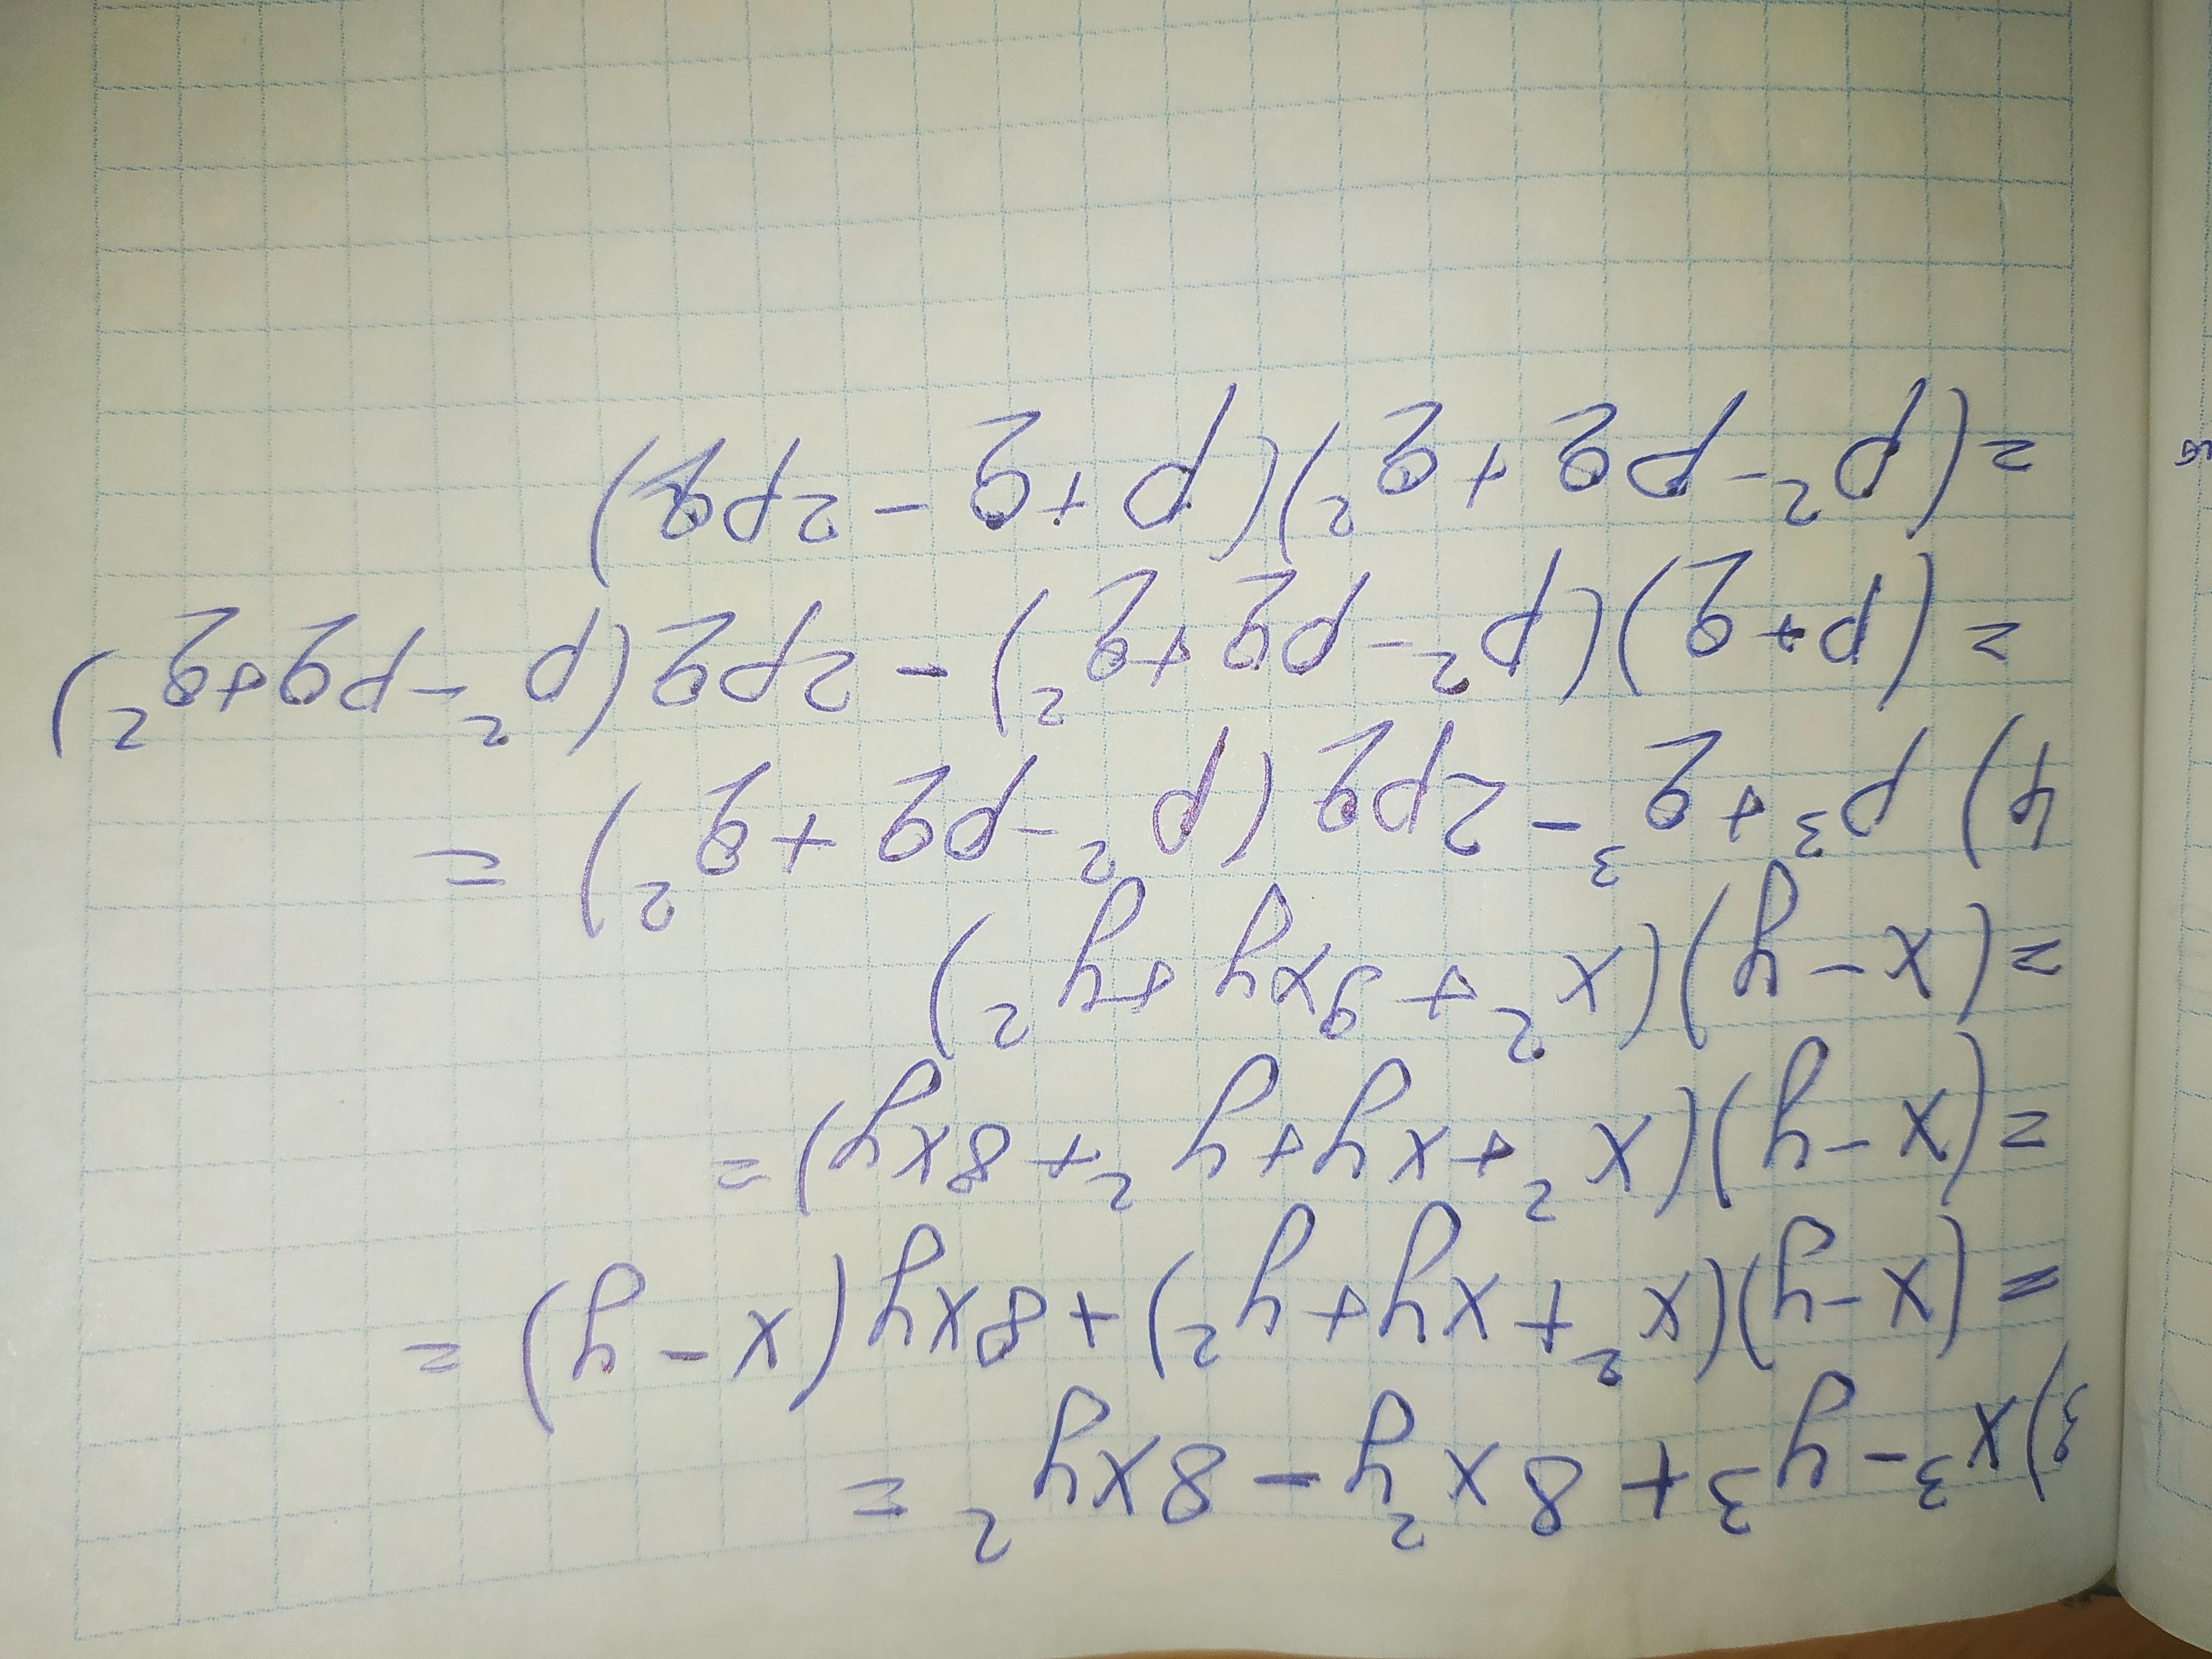 3) x³ - y³ + 8x²y - 8xy² =
= (x - y)(x² + xy + y²) + 8xy(x - y) =
= (x - y)(x² + xy + y² + 8xy) =
= (x - y)(x² + 9xy + y²)
4) p³ + q³ - 2pq(p² - pq + q²) =
= (p + q)(p² - pq + q²) - 2pq(p² - pq + q²)
= (p² - pq + q²)(p + q - 2pq)